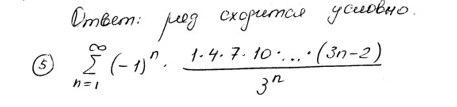 Ответ: ряд сходится условно.
⑤ $\sum_{n=1}^{\infty} (-1)^n \cdot \frac{1 \cdot 4 \cdot 7 \cdot 10 \cdot \ldots \cdot (3n-2)}{3^n}$